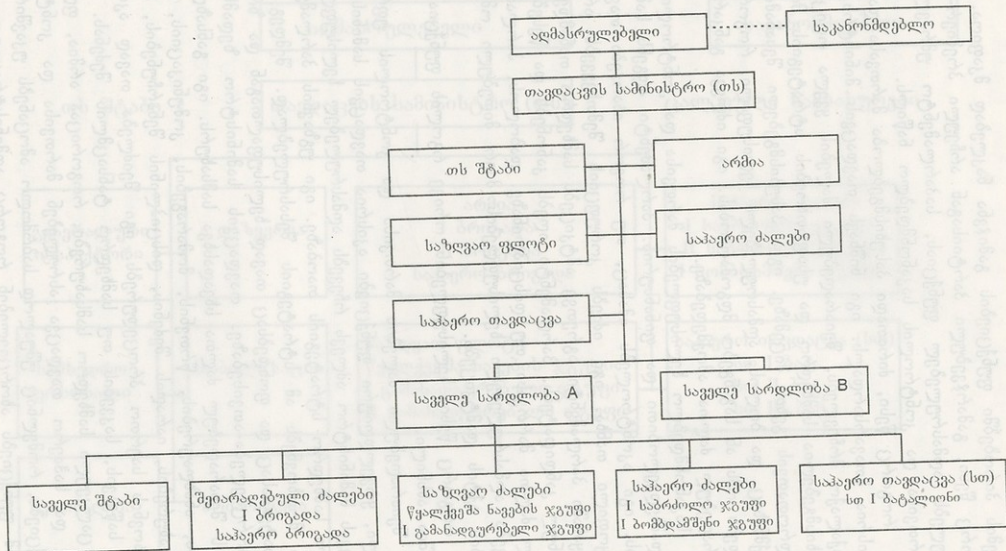 აღმასრულებელი
საკანონმდებლო
თავდაცვის სამინისტრო (თს)
თს შტაბი
არმია
საზღვაო ფლოტი
საჰაერო ძალები
საჰაერო თავდაცვა
საველე სარდლობა A
საველე სარდლობა B
საველე შტაბი
შეიარაღებული ძალები
I ბრიგადა
საჰაერო ბრიგადა
საზღვაო ძალები
წყალქვეშა ნავების ჯგუფი
I გამანადგურებელი ჯგუფი
საჰაერო ძალები
I საბრძოლო ჯგუფი
I ბომბდამშენი ჯგუფი
საჰაერო თავდაცვა (სთ)
სთ I ბატალიონი